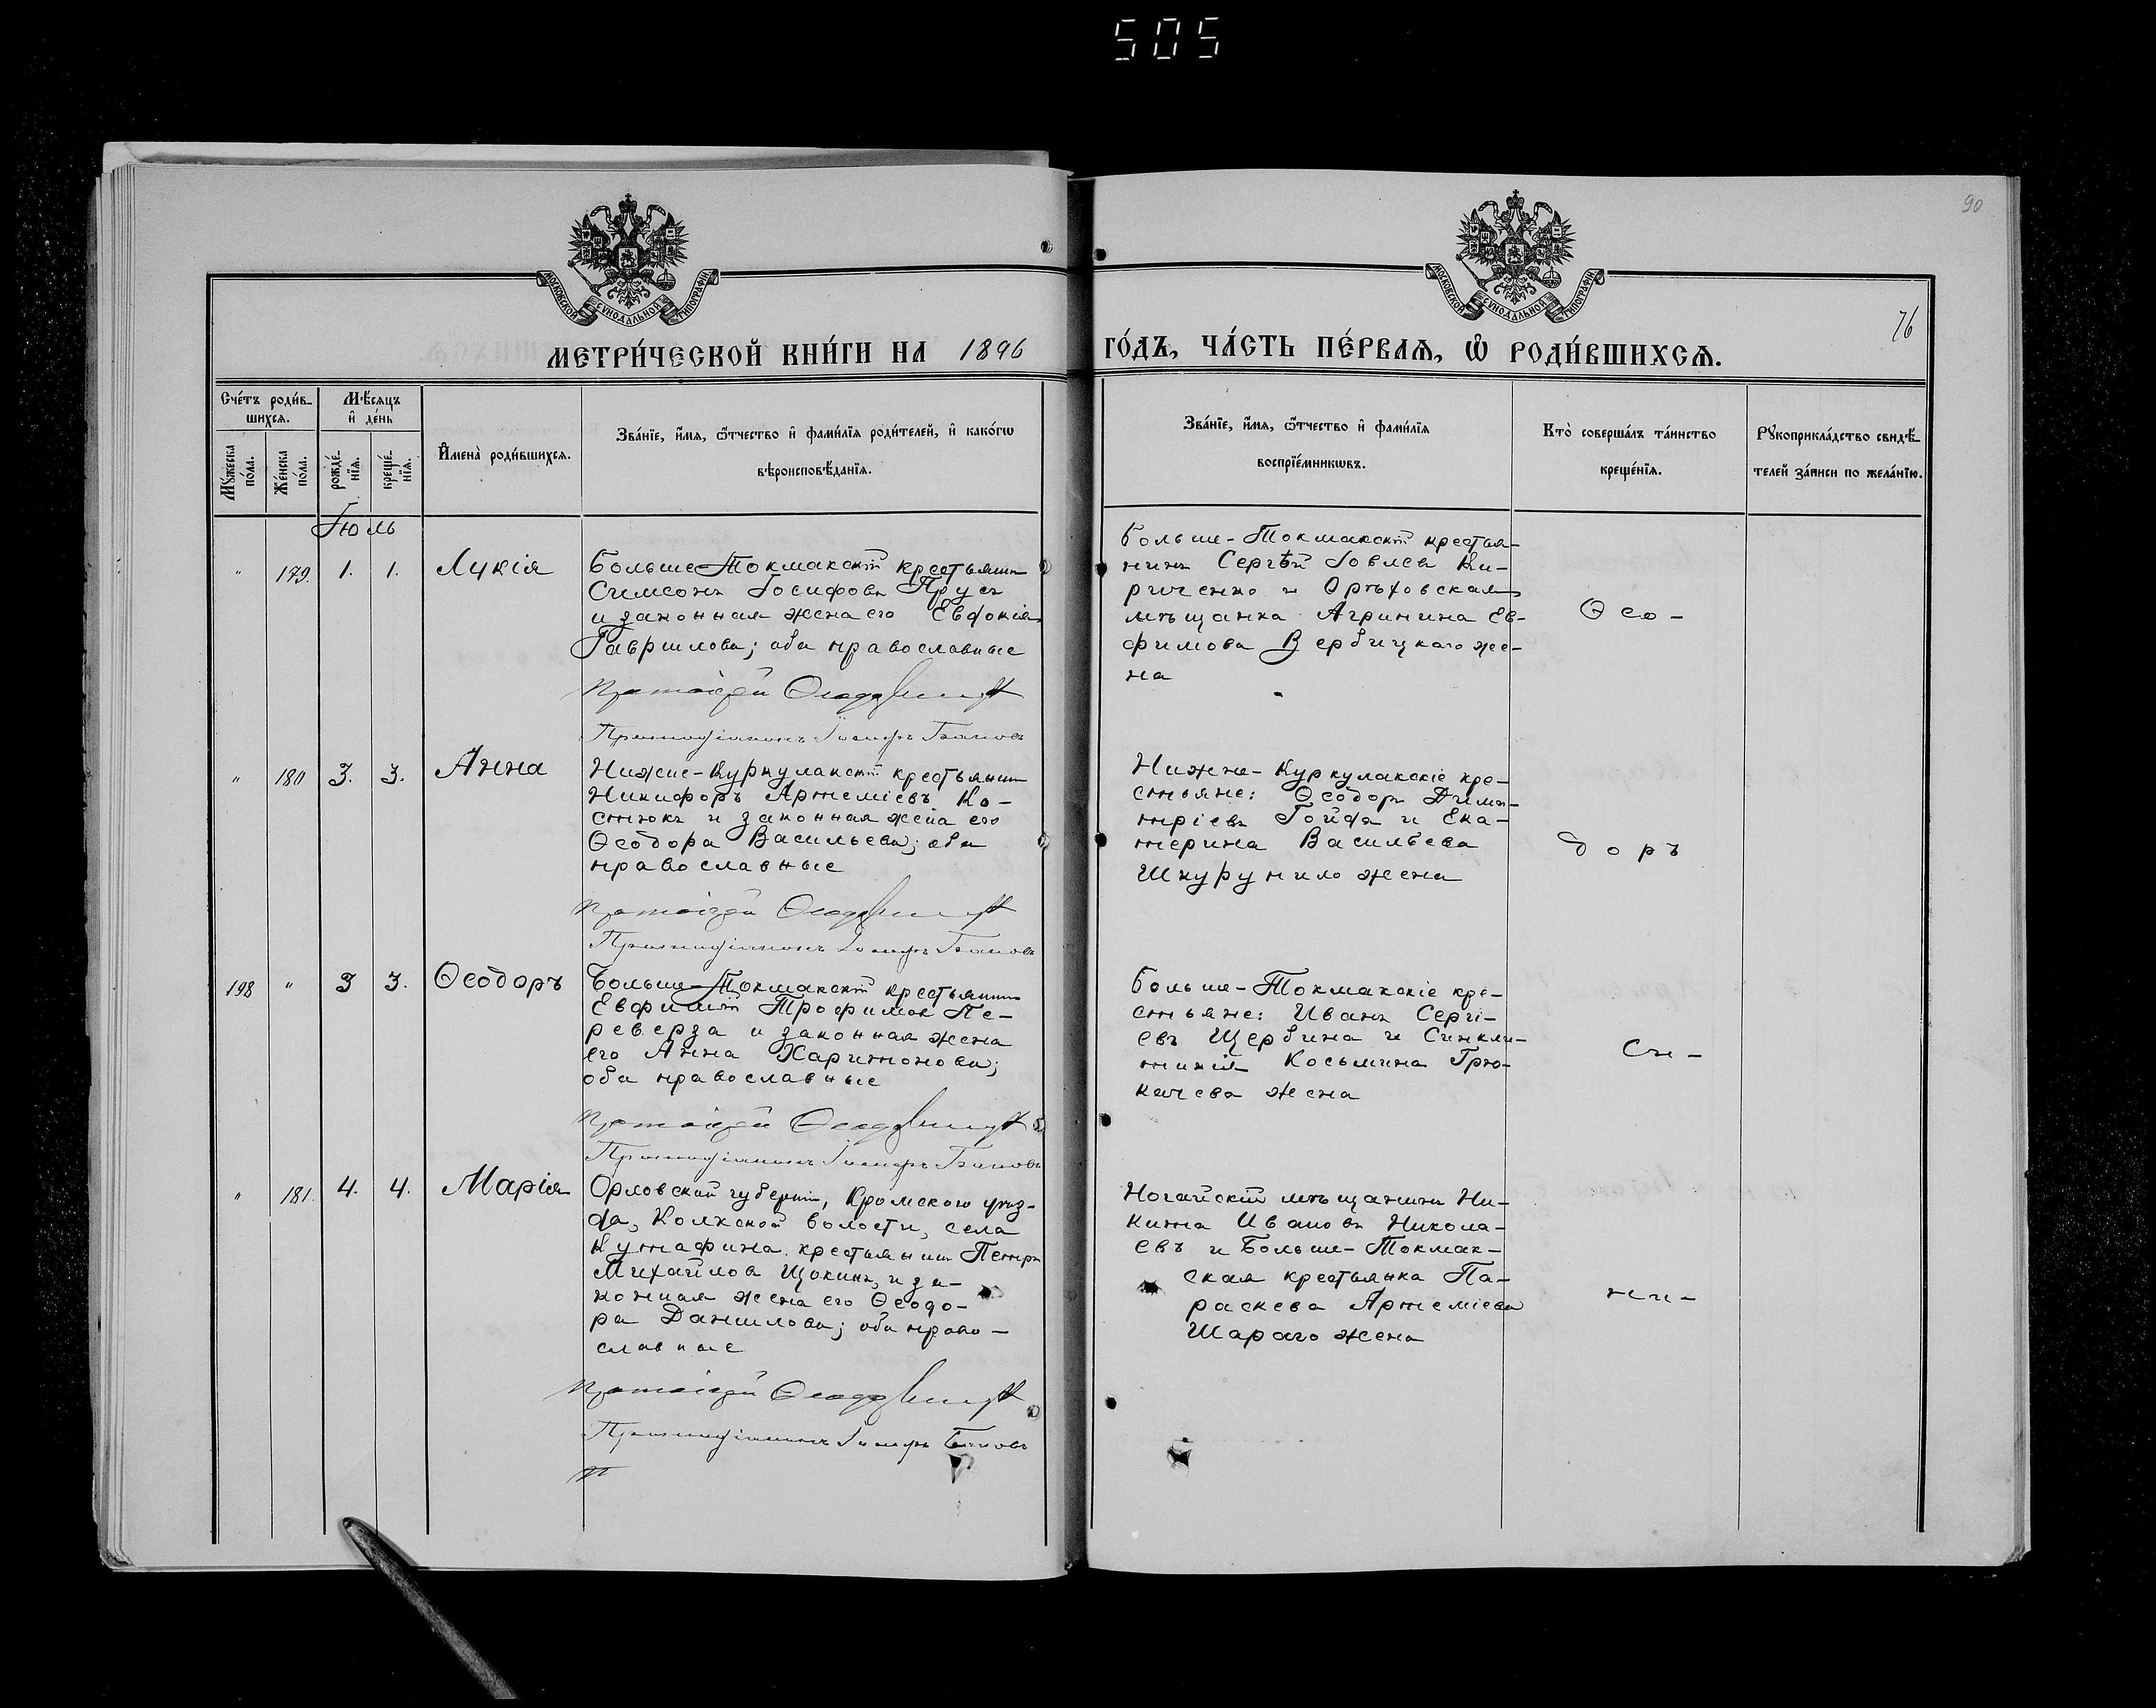 505
90
76
МОСКОВСКОЙ СУНОДАЛЬНОЙ ТИПОГРАФІИ
МОСКОВСКОЙ СУНОДАЛЬНОЙ ТИПОГРАФІИ
МЕТРИ́ЧЕСКОЙ КНИ́ГИ НА 1896
ГО́ДЪ, ЧА́СТЬ ПЕ́РВАѦ, Ѡ҆ РОДИ́ВШИХСѦ.
Сче́тъ роди́в-
шихсѧ.
Мѣ́сяцъ
и҆ де́нь
Мꙋ́жеска
по́ла.
Же́нска
по́ла.
рожде́-
нїѧ.
креще́-
нїѧ.
И҆мена̀ роди́вшихсѧ.
Зва́нїе, и҆́мѧ, ѻ҆́тчество и҆ фами́лїѧ роди́телей, и҆ како́гѡ
вѣроисповѣ́данїѧ.
Зва́нїе, и҆́мѧ, ѻ҆́тчество и҆ фами́лїѧ
воспрїе́мникѡвъ.
Кто̀ соверша́лъ та́инство
креще́нїѧ.
Рꙋкоприкла́дство свидѣ́-
телей за́писи по жела́нїю.
Іюль
" 179. 1. 1. Лукія
Больше-Токмакскій крестьянинъ
Симеонъ Іосифовъ Прусъ
и законная жена его Евдокія
Гаврилова; оба православные
Протоіерей Ѳеодоръ
Протодіаконъ Іосифъ Баковъ
Больше-Токмакскій крестья-
нинъ Сергѣй Іовлевъ Ки-
риченко и Орѣховская
мѣщанка Агрипина Ев-
фимова Вербицкаго же-
на
Ѳео-
" 180 3. 3. Анна
Нижне-Куркулакскій крестьянинъ
Никифоръ Артеміевъ Ко-
стюкъ и законная жена его
Ѳеодора Васильева; оба
православные
Протоіерей Ѳеодоръ
Протодіаконъ Іосифъ Баковъ
Нижне-Куркулакскіе кре-
стьяне: Ѳеодоръ Дими-
тріевъ Гойда и Ека-
терина Васильева
Шкурупило жена
доръ
198 " 3 3. Ѳеодоръ
Больше-Токмакскій крестьянинъ
Евфимій Трофимовъ Пе-
реверза и законная жена
его Анна Харитонова;
оба православные
Протоіерей Ѳеодоръ
Протодіаконъ Іосифъ Баковъ
Больше-Токмакскіе кре-
стьяне: Иванъ Сергі-
евъ Щербина и Синкли-
тикія Косьмина Грю-
качева жена
Си-
" 181. 4. 4. Марія
Орловской губерніи, Кромскаго уѣз-
да, Колкской волости, села
Кутафина крестьянинъ Петръ
Михайловъ Щокинъ, и за-
конная жена его Ѳеодо-
ра Данилова; оба право-
славные
Протоіерей Ѳеодоръ
Протодіаконъ Іосифъ Баковъ
Ногайскій мѣщанинъ Ни-
кита Ивановъ Никола-
евъ и Больше-Токмак-
ская крестьянка Па-
раскева Артеміева
Шараго жена
ни-